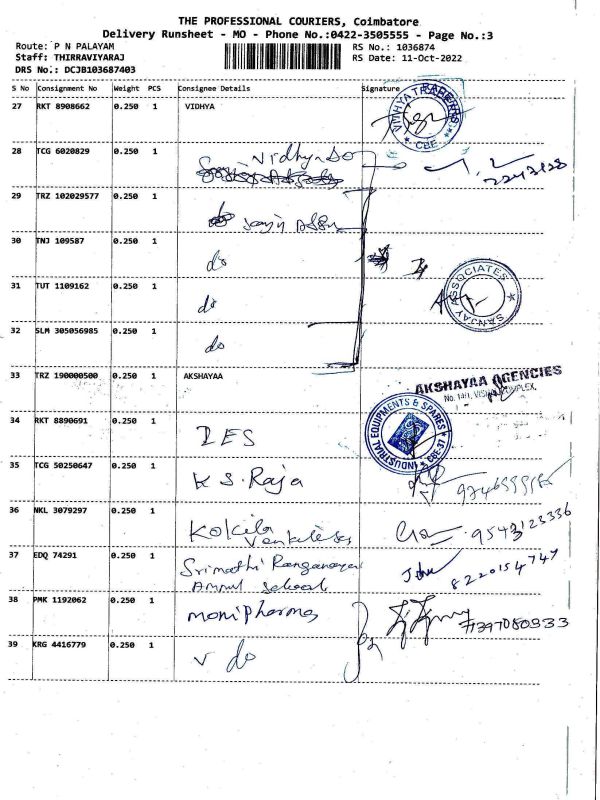 THE PROFESSIONAL COURIERS, Coimbatore
Delivery Runsheet - MO - Phone No.:0422-3505555 - Page No.:3
Route: P N PALAYAM
RS No.: 1036874
Staff: THIRRAVIYARAJ
RS Date: 11-Oct-2022
DRS No.: DCJB103687403
S No Consignment No Weight PCS Consignee Details Signature
27 RKT 8908662 0.250 1 VIDHYA
CBE
28 TCG 6020829 0.250 1
29 TRZ 102029577 0.250 1
30 TNJ 109587 0.250 1 do
31 TUT 1109162 0.250 1 do
SANJAY ASSOCIATES
32 SLM 305056985 0.250 1 do
33 TRZ 190000500 0.250 1 AKSHAYAA
AKSHAYAA AGENCIES
34 RKT 8890691 0.250 1 IES
INDUSTRIAL EQUIPMENTS & SPARES CBE-37
35 TCG 50250647 0.250 1 K S. Raja
36 NKL 3079297 0.250 1 Kokila
9543123336
37 EDQ 74291 0.250 1 Srimathi
School
8220154747
38 PMK 1192062 0.250 1 monipharma
39 KRG 4416779 0.250 1 do